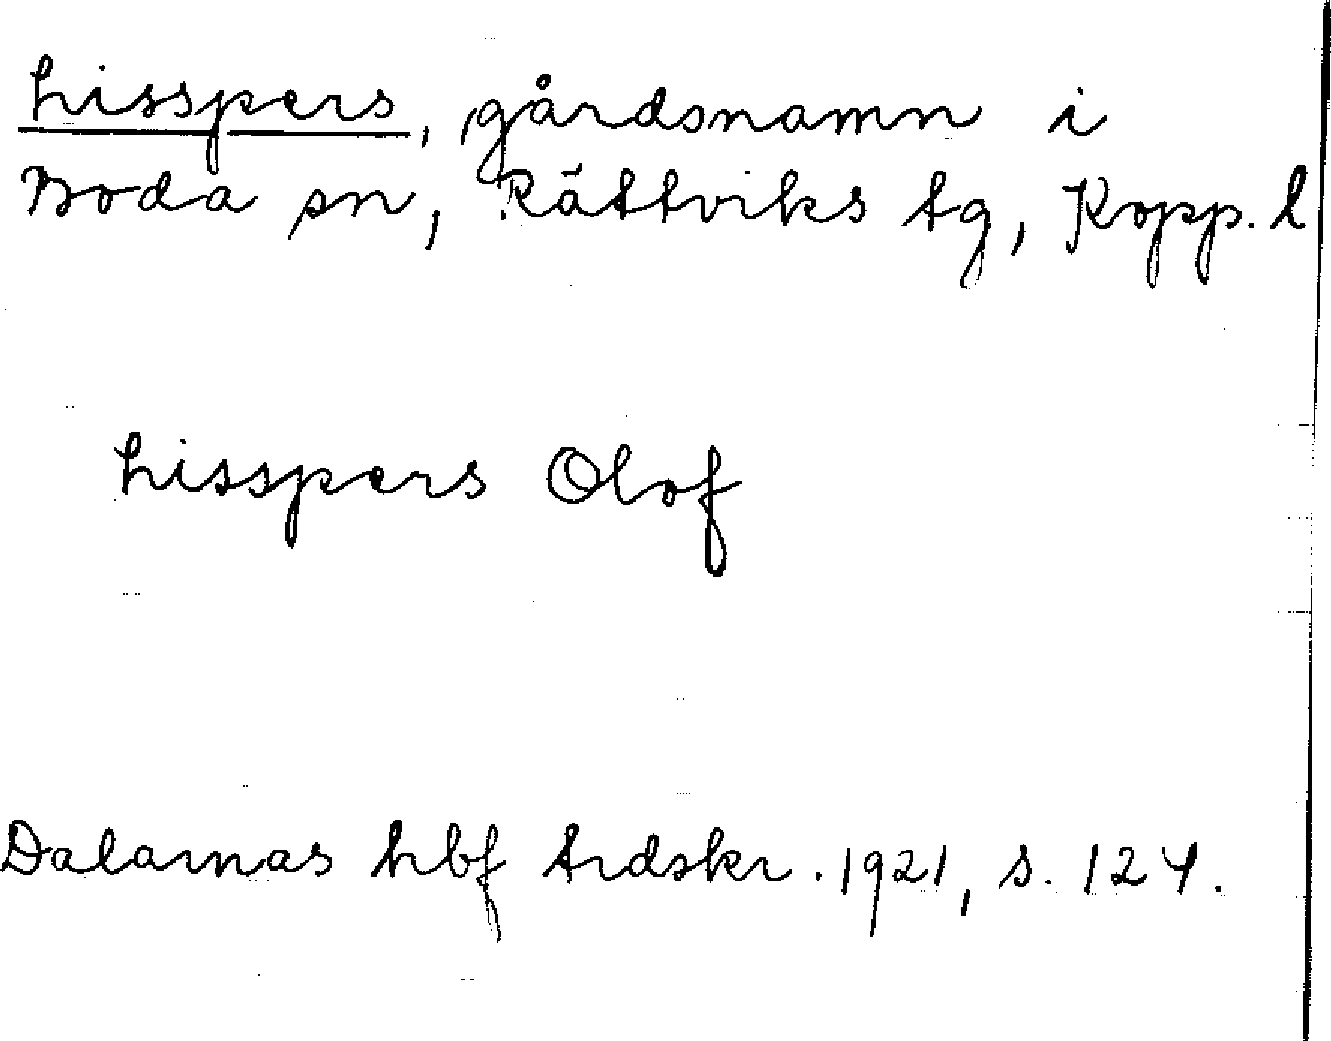 Lisspers, gårdsnamn i
Boda sn, Rättviks tg, Kopp. l
Lisspers Olof
Dalarnas hbf tidskr. 1921, s. 124.